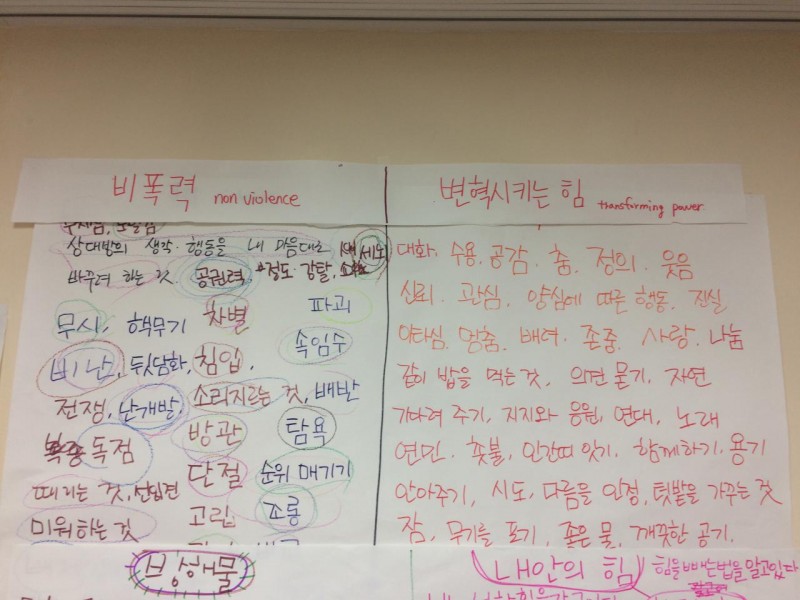 비폭력 non violence
변혁시키는 힘 transforming power
상대방의 생각·행동을 내 마음대로
바꾸려 하는 것. 공권력, 강탈,
세뇌
무시, 핵무기 차별 파괴
비난, 뒷담화, 침입, 속임수
전쟁, 난개발, 소리지르는 것, 배반
독점 방관 탐욕
때리는 것, 선입견 단절 순위 매기기
미워하는 것 고립 조롱
대화. 수용. 공감. 춤. 정의. 웃음
신뢰. 관심. 양심에 따른 행동. 진실
이타심. 멈춤. 배려. 존중. 사랑. 나눔
같이 밥을 먹는 것, 의견 묻기. 자연
기다려 주기, 지지와 응원, 연대, 노래
연민. 촛불, 인간띠 잇기. 함께하기. 용기
안아주기, 시도, 다름을 인정, 텃밭을 가꾸는 것
잠, 무기를 포기, 좋은 물, 깨끗한 공기.
방해물
내안의 힘 힘을 빼는법을 알고있다